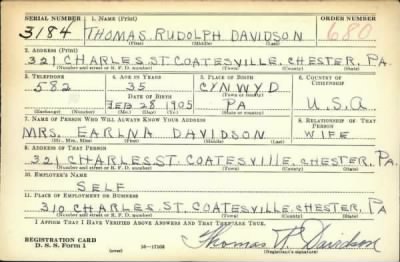 SERIAL NUMBER 1. NAME (Print) ORDER NUMBER
3184 THOMAS RUDOLPH DAVIDSON 680
(First) (Middle) (Last)
2. ADDRESS (Print)
321 CHARLES ST. COATESVILLE, CHESTER, PA.
(Number and street or R. F. D. number) (Town) (County) (State)
3. TELEPHONE 4. AGE IN YEARS 5. PLACE OF BIRTH 6. COUNTRY OF CITIZENSHIP
582 35 CYNWYD
DATE OF BIRTH
FEB 28 1905 PA U.S.A.
(Exchange) (Number) (Mo.) (Day) (Yr.) (State or country)
7. NAME OF PERSON WHO WILL ALWAYS KNOW YOUR ADDRESS 8. RELATIONSHIP OF THAT PERSON
MRS. EARLNA DAVIDSON WIFE
(Mr., Mrs., Miss) (First) (Middle) (Last)
9. ADDRESS OF THAT PERSON
321 CHARLES ST. COATESVILLE, CHESTER, PA.
(Number and street or R. F. D. number) (Town) (County) (State)
10. EMPLOYER'S NAME
SELF
11. PLACE OF EMPLOYMENT OR BUSINESS
310 CHARLES ST. COATESVILLE, CHESTER, PA
(Number and street or R. F. D. number) (Town) (County) (State)
I AFFIRM THAT I HAVE VERIFIED ABOVE ANSWERS AND THAT THEY ARE TRUE.
REGISTRATION CARD
D. S. S. Form 1 (over) Thomas R Davidson
(Registrant's signature)